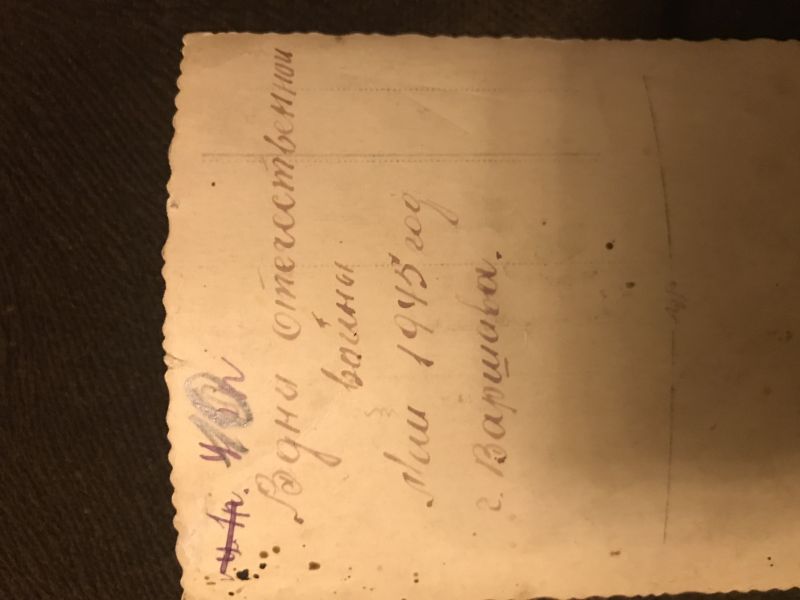 В дни отечественной
войны
Май 1945 год
г. Варшава.